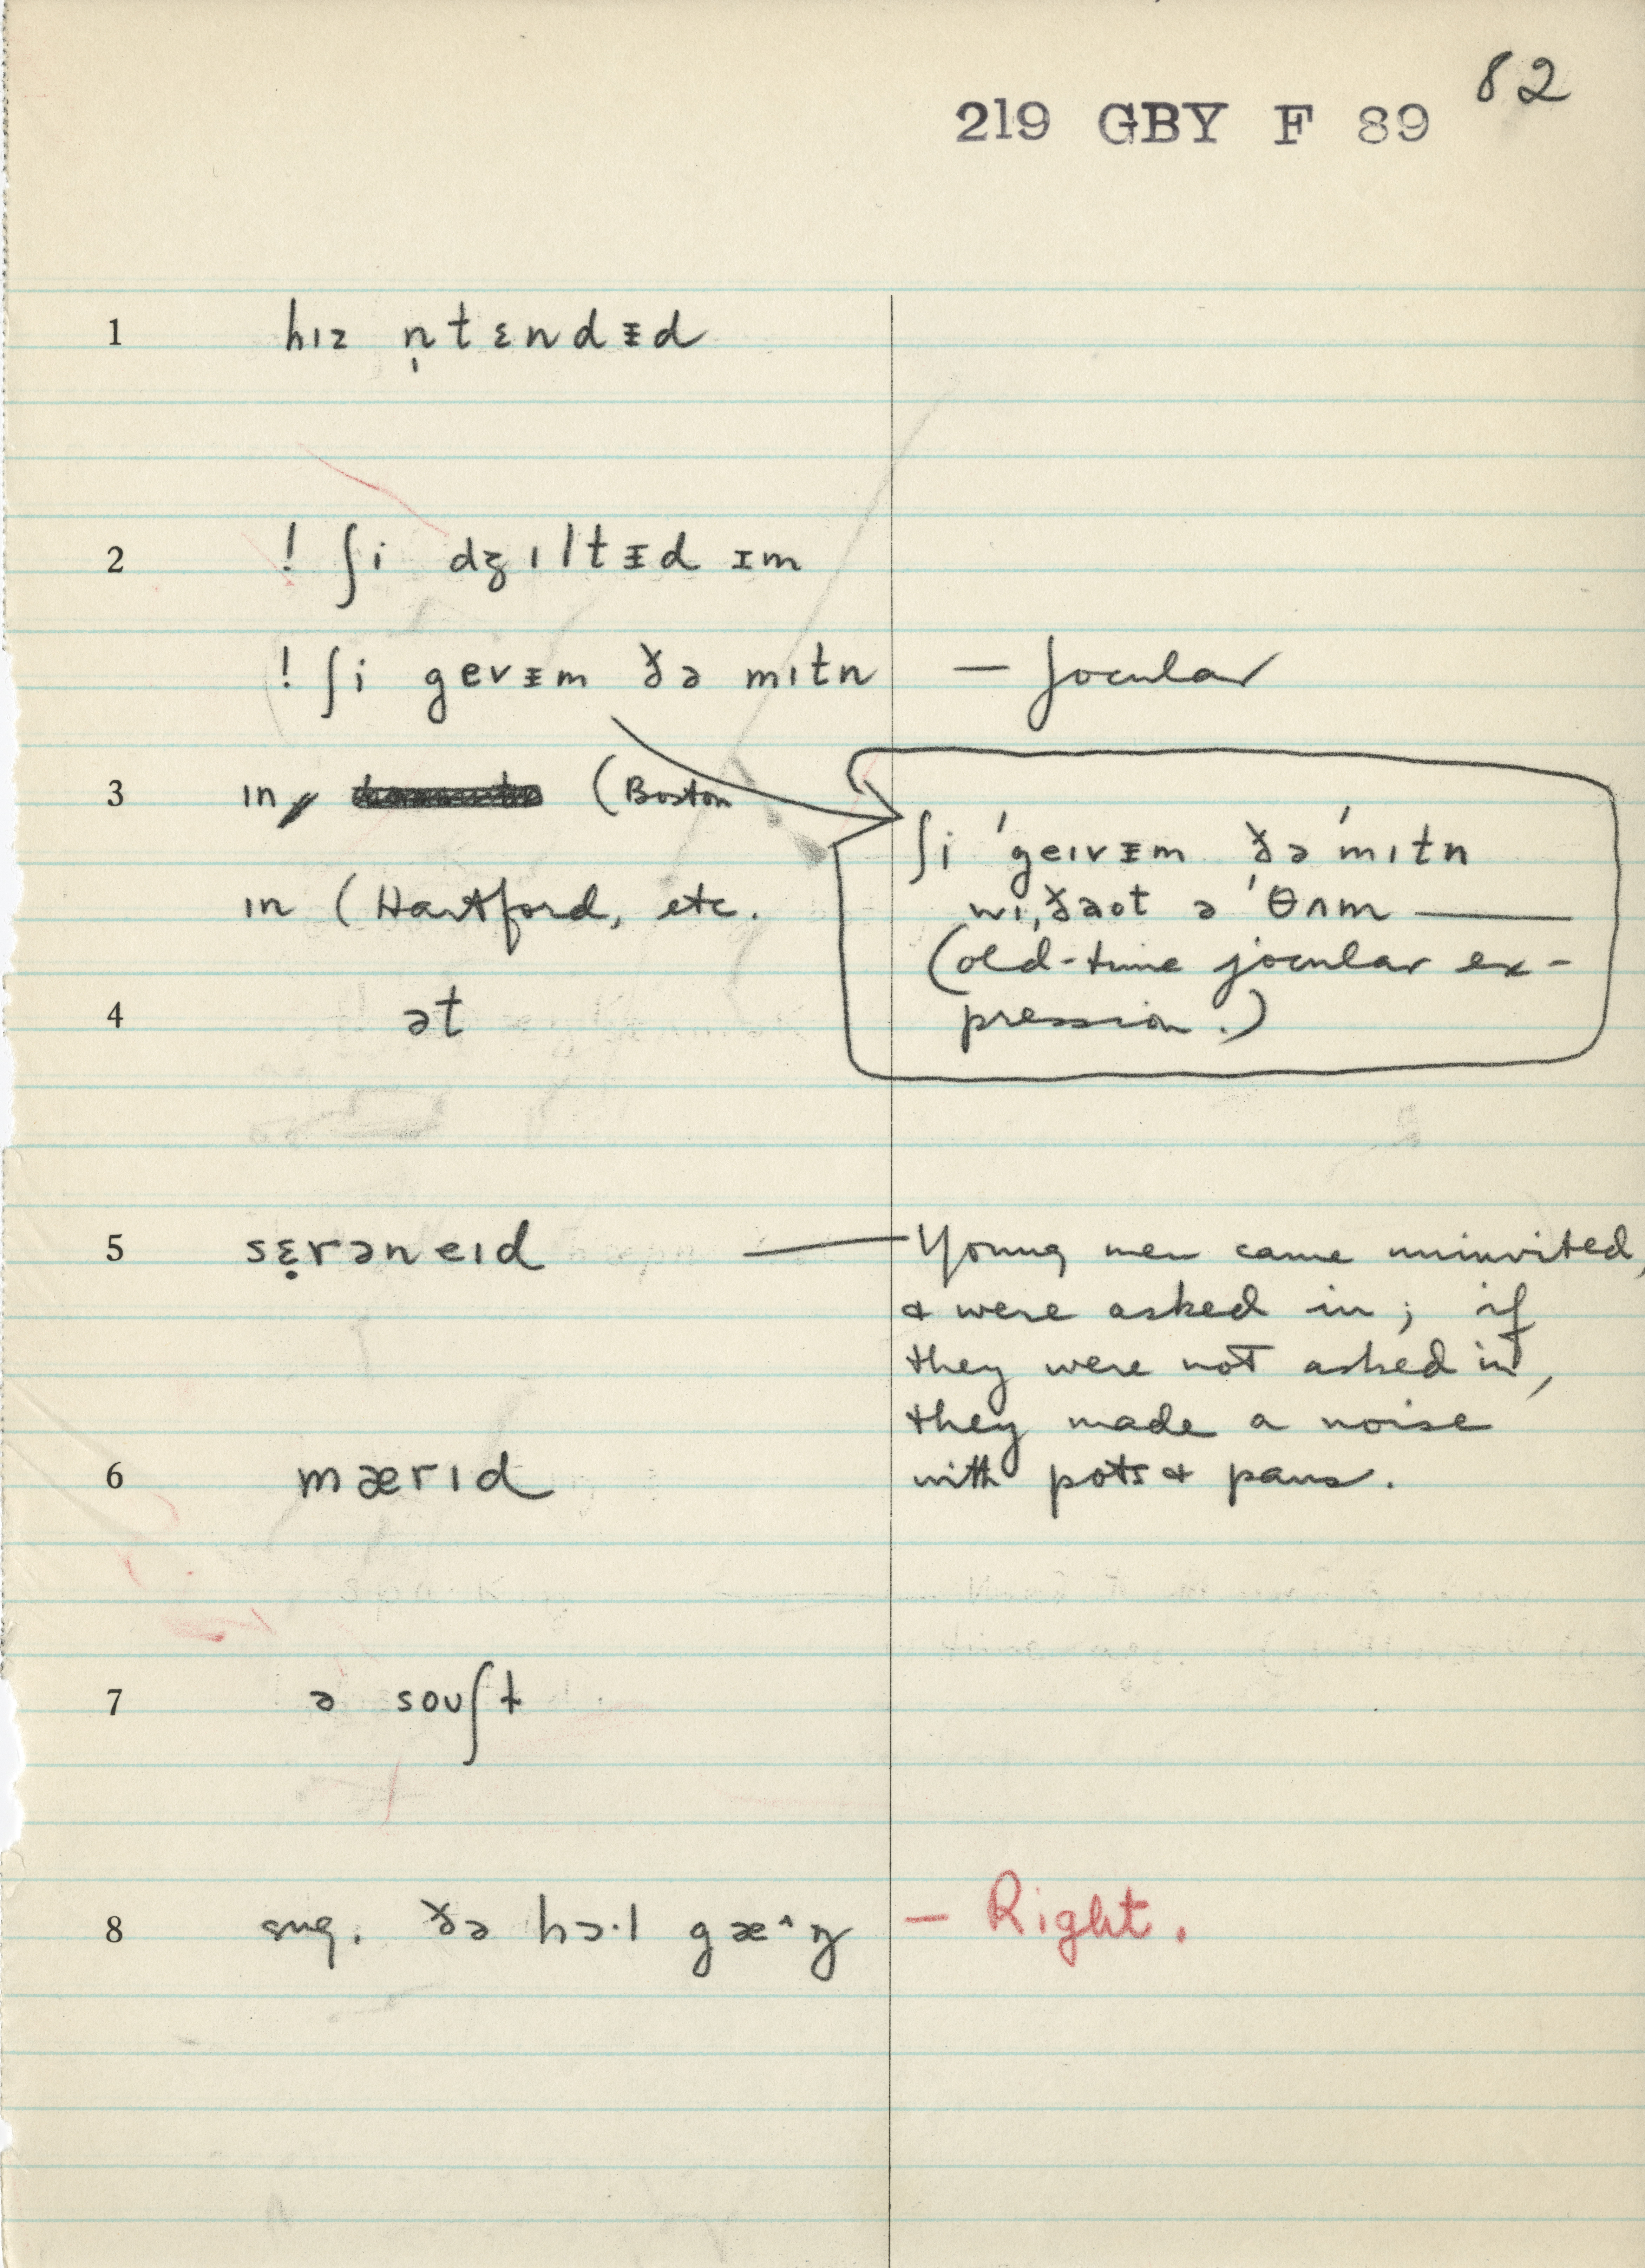 82
219 GBY F 89
1 hɪz n̩tɛndᵻd
2 ! ʃi dʒɪltᵻd ɪm
! ʃi gevᵻm ðə mɪtn — Jocular
3 ɪn (Boston
ʃi ˈgeɪvᵻm ðəˈmɪtn
ɪn (Hartford, etc.
wɪˌðaʊt ə ˈθʌm ——
(old-time jocular ex-
4 ət
pression.)
5 sɛ̣rəneɪd — Young men came uninvited,
& were asked in; if
they were not asked in,
they made a noise
6 mærɪd
with pots & pans.
7 ə soʊʃt
8 sug. ðə hɔ·l gæ^ŋ — Right.